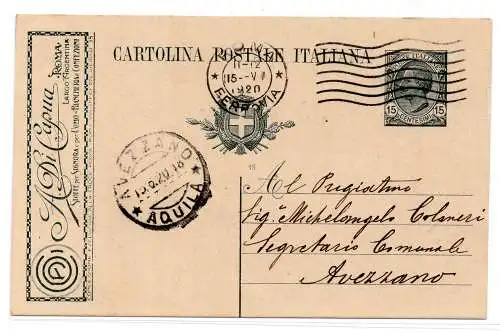 CARTOLINA POSTALE ITALIANA
ROMA
11-12
15
1920
FERROVIA
POSTE ITALIANE
15 15
CENTESIMI
A. Di Capua
ROMA
LARGO ARGENTINA
SARTE PER SIGNORA E PER UOMO - BIANCHERIA E CONFEZIONI
AVEZZANO
20.18
AQUILA
18
Al Pregiatmo
Sig. Michelangelo Colaneri
Segretario Comunale
Avezzano